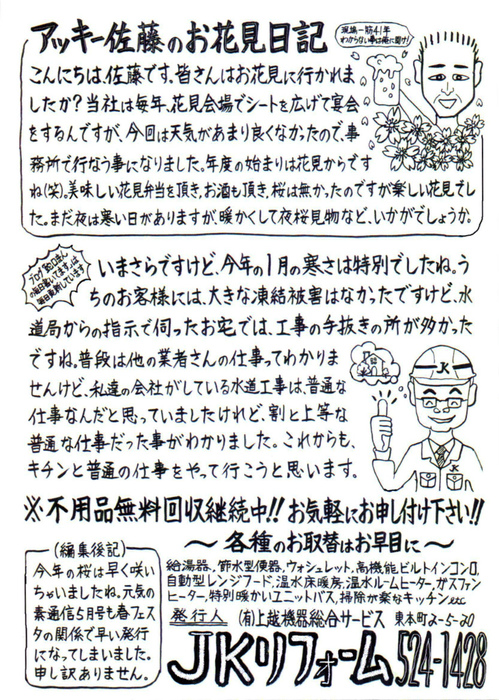 アッキー佐藤のお花見日記
現場一筋41年
わからない事は俺に聞け!
こんにちは、佐藤です。皆さんはお花見に行かれま
したか?当社は毎年、花見会場でシートを広げて宴会
をするんですが、今回は天気があまり良くなかったので、事
務所で行なう事になりました。年度の始まりは花見からです
ね(笑)。美味しい花見弁当を頂き、お酒も頂き、桜は無かったのですが楽しい花見でし
た。まだ夜は寒い日がありますが、暖かくして夜桜見物など、いかがでしょうか。
いまさらですけど、今年の1月の寒さは特別でしたね。う
ちのお客様には、大きな凍結被害はなかったですけど、水
道局からの指示で伺ったお宅では、工事の手抜きの所が多かった
ですね。普段は他の業者さんの仕事ってわかりま
せんけど、私達の会社がしている水道工事は、普通な
仕事なんだと思っていましたけれど、割と上等な
普通な仕事だった事がわかりました。これからも、
キチンと普通の仕事をやって行こうと思います。
JK
JK
※不用品無料回収継続中!!お気軽にお申し付け下さい!!
〜各種のお取替はお早目に〜
給湯器、節水型便器、ウォシュレット、高機能ビルトインコンロ、
自動型レンジフード、温水床暖房、温水ルームヒーター、ガスファン
ヒーター、特別暖かいユニットバス、掃除が楽なキッチンetc
(編集後記)
今年の桜は早く咲い
ちゃいましたね。元気の
素通信5月号も春フェス
タの関係で早い発行
になってしまいました。
申し訳ありません。
発行人 (有)上越機器総合サービス 東本町2-5-20
JKリフォーム 524-1428